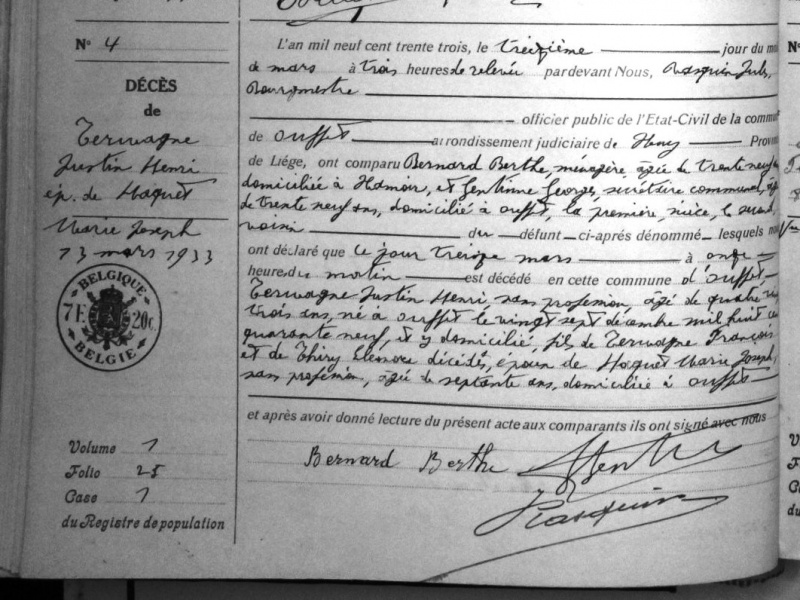 Nº 4
DÉCÈS
de
Terwagne
Justin Henri
ép. de Haquet
Marie Joseph
13 mars 1933
BELGIQUE
7 F. 20c.
BELGIE
Volume 1
Folio 25
Case 1
du Registre de population
L'an mil neuf cent trente trois, le treizième jour du m
de mars à trois heures de relevée pardevant Nous, Rasquin Jules,
Bourgmestre
officier public de l'Etat-Civil de la commu
de Ouffet arrondissement judiciaire de Huy Provin
de Liége, ont comparu Bernard Berthe, ménagère, âgée de trente neuf
domiciliée à Hamoir, et Gentinne Georges, secrétaire communal, âg
de trente neuf ans, domicilié à Ouffet, la première nièce, le second
voisin du défunt ci-après dénommé lesquels nous
ont déclaré que ce jour treize mars à onze
heures du matin est décédé en cette commune d'Ouffet
Terwagne Justin Henri, sans profession, âgé de quatre vingt
trois ans, né à Ouffet le vingt sept décembre mil huit ce
quarante neuf, et y domicilié, fils de Terwagne François
et de Thiry Eleonore décédés, époux de Haquet Marie Joseph,
sans profession, âgée de septante ans, domiciliée à Ouffet
et après avoir donné lecture du présent acte aux comparants ils ont signé avec nous
Bernard Berthe
Rasquin